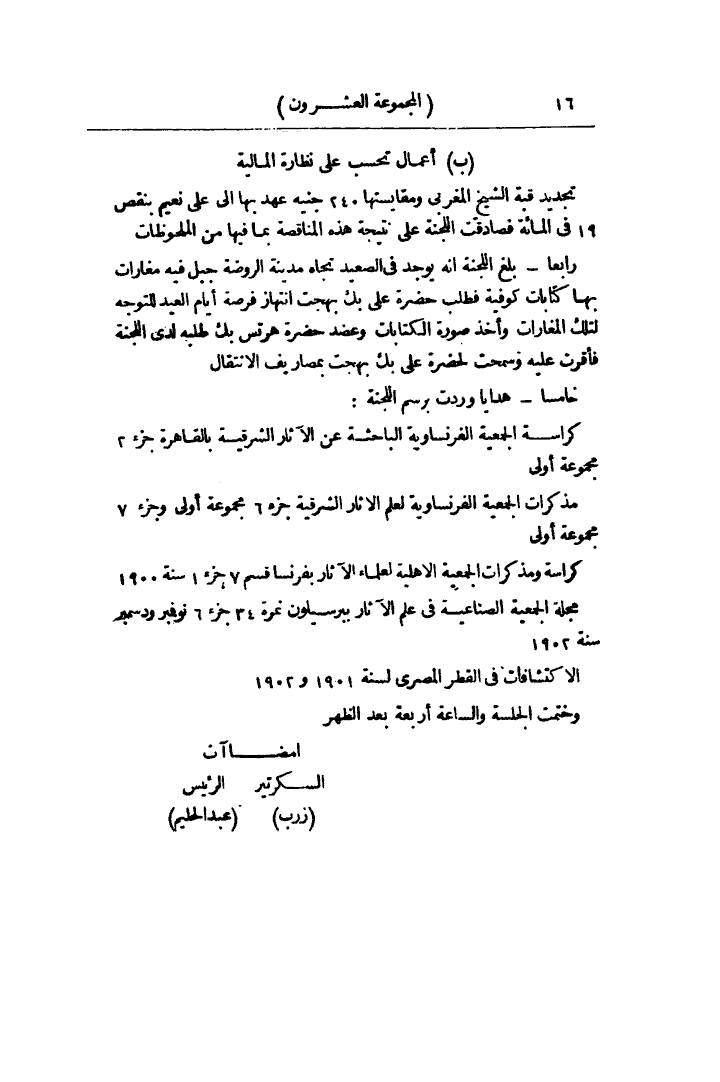 ١٦ ( المجموعة العشرون )
(ب) أعمال تحسب على نظارة المالية
تجديد قبة الشيخ المغربى ومقايستها ٢٤٠ جنيه عهد بها الى على نعيم بنقص
١٩ فى المائة فصادقت اللجنة على نتيجة هذه المناقصة بما فيها من الملحوظات
رابعا – بلغ اللجنة انه يوجد فى الصعيد تجاه مدينة الروضة جبل فيه مغارات
بها كتابات كوفية فطلب حضرة على بك بهجت انتهاز فرصة أيام العيد للتوجه
لتلك المغارات وأخذ صورة الكتابات وعضد حضرة هرتس بك طلبه لدى اللجنة
فأقرت عليه وسمحت لحضرة على بك بهجت بمصاريف الانتقال
خامسا – هدايا وردت برسم اللجنة :
كراسة الجمعية الفرنساوية الباحثة عن الآثار الشرقية بالقاهرة جزء ٢
مجموعة أولى
مذكرات الجمعية الفرنساوية لعلم الاثار الشرقية جزء ٦ مجموعة أولى وجزء ٧
مجموعة أولى
كراسة ومذكرات الجمعية الاهلية لعلماء الآثار بفرنسا قسم ٧ جزء ١ سنة ١٩٠٠
مجلة الجمعية الصناعية فى علم الآثار ببرسيلون نمرة ٣٤ جزء ٦ نوفمبر ودسمبر
سنة ١٩٠٢
الاكتشافات فى القطر المصرى لسنة ١٩٠١ و ١٩٠٢
وختمت الجلسة والساعة أربعة بعد الظهر
امضاآت
السكرتير الرئيس
(زرب) (عبدالحليم)